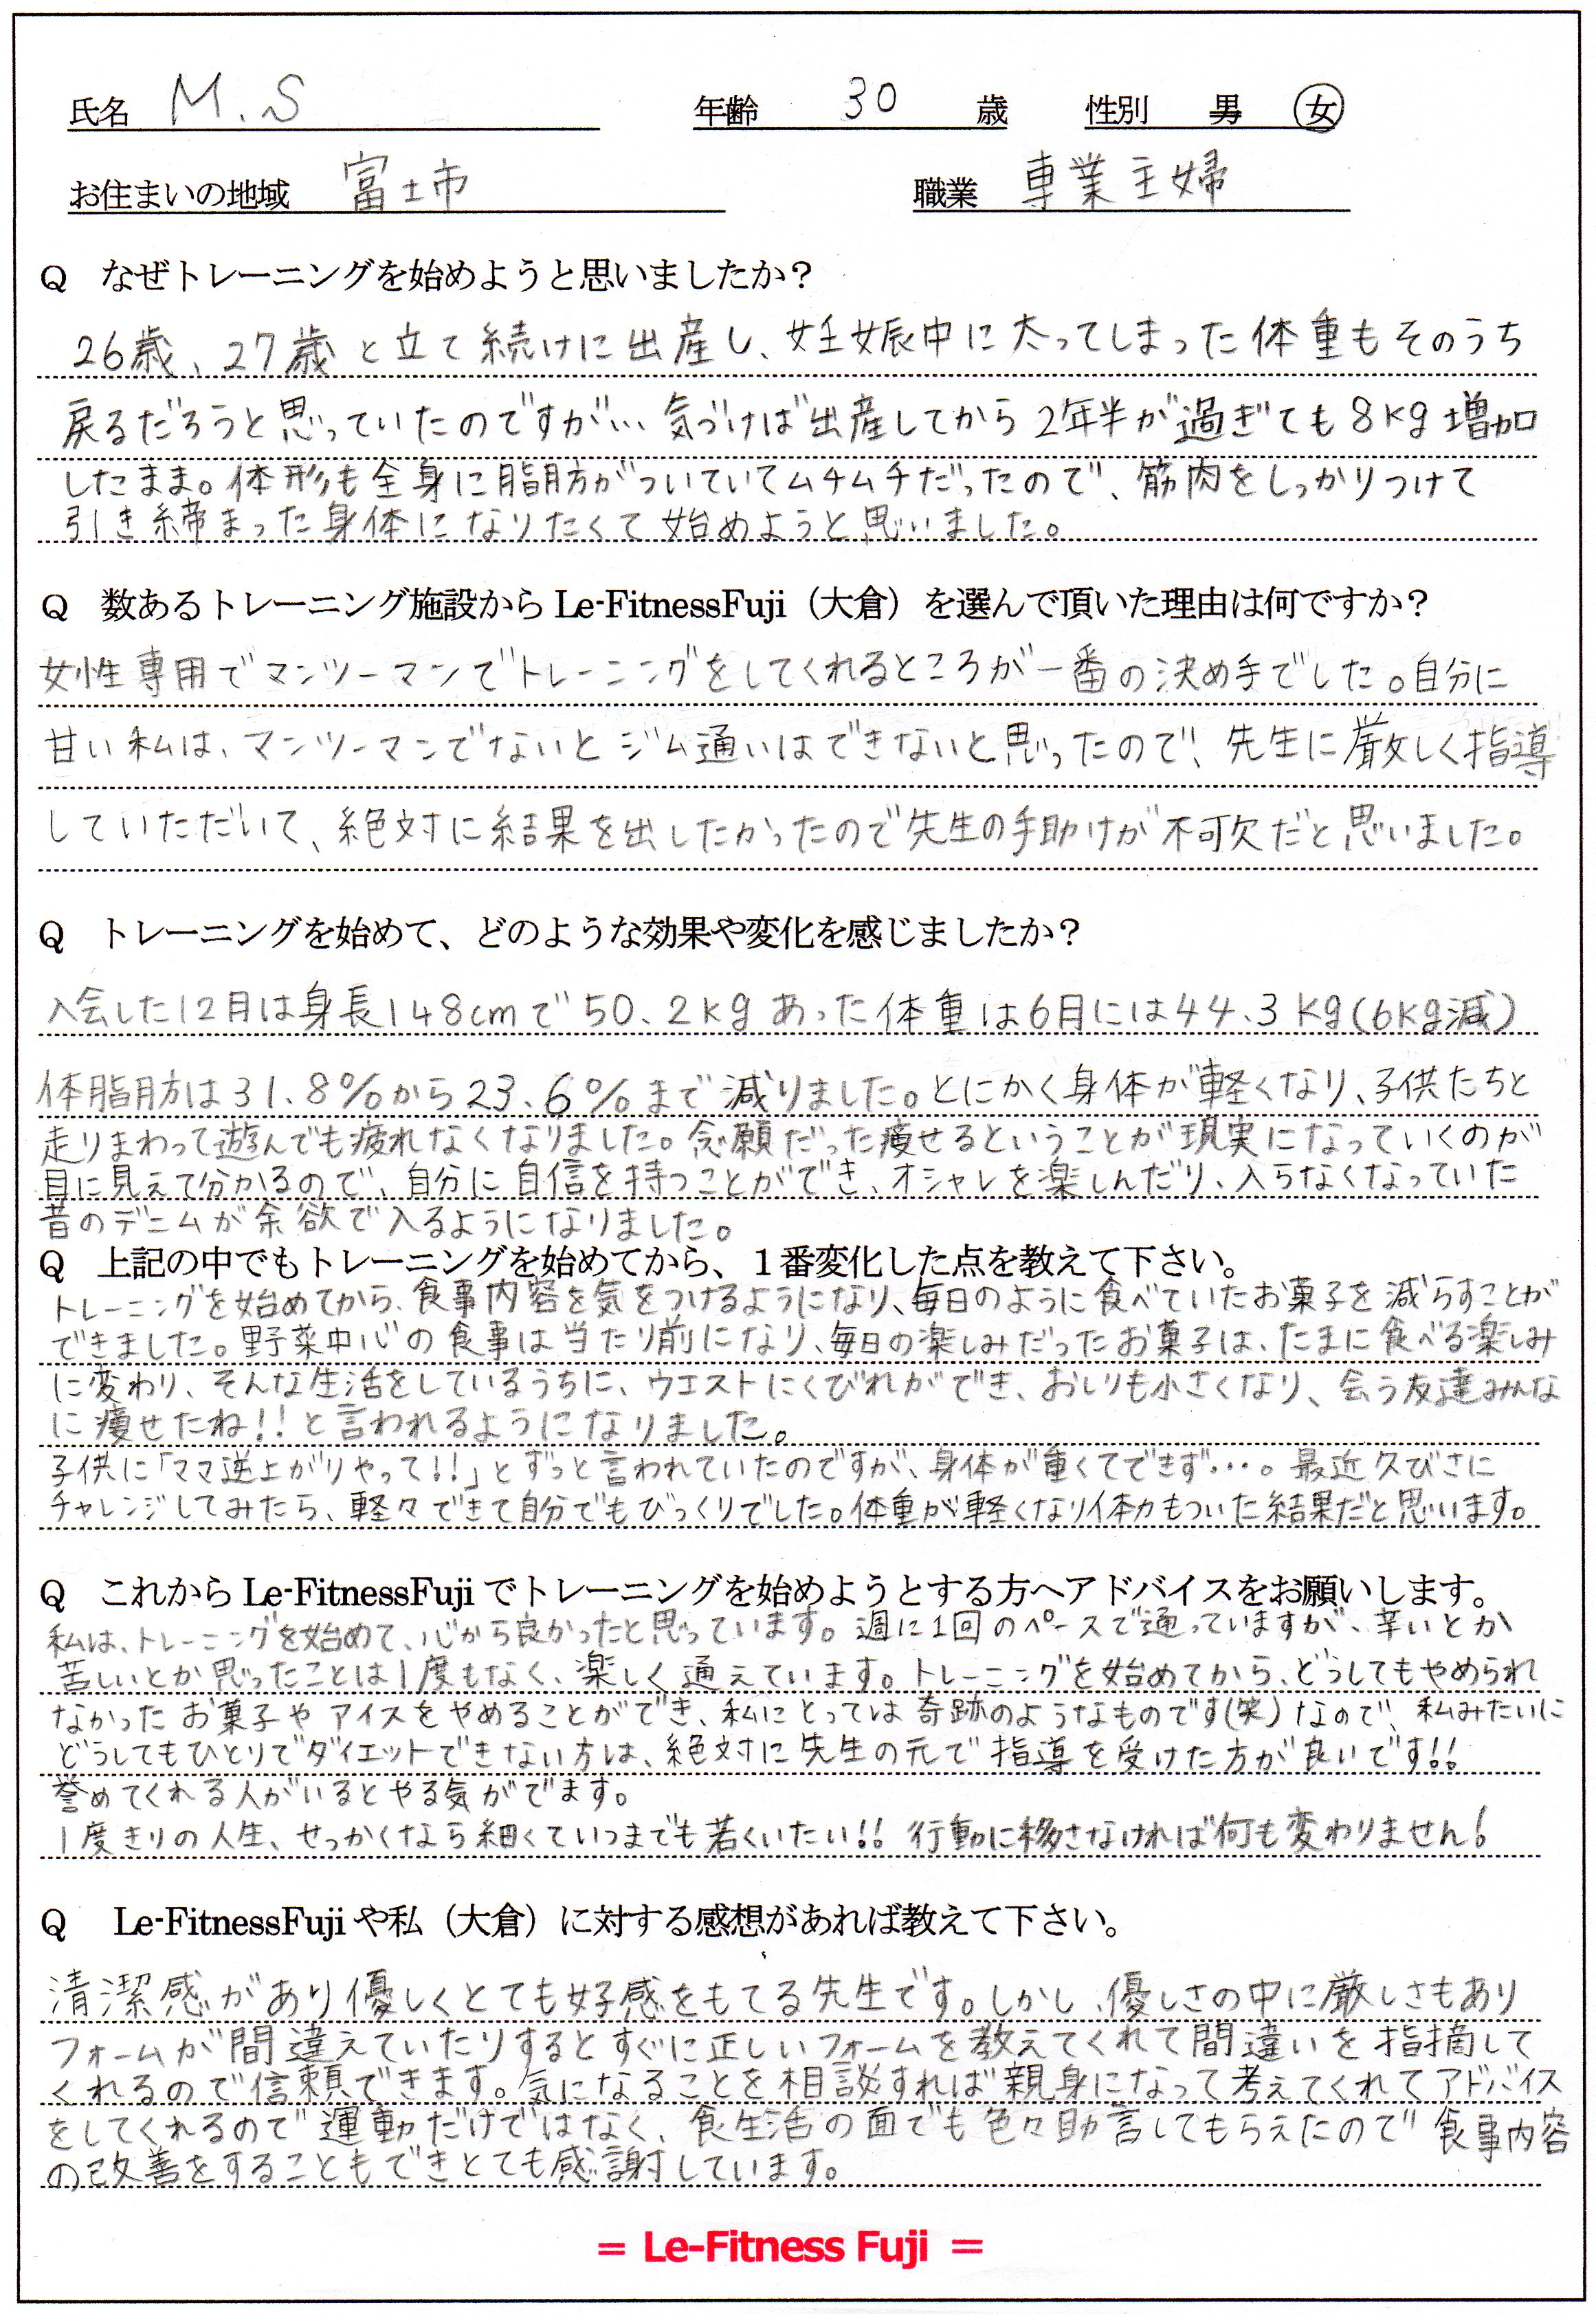 氏名 M.S 年齢 30 歳 性別 男 女
お住まいの地域 富士市 職業 専業主婦
Q なぜトレーニングを始めようと思いましたか？
26歳、27歳と立て続けに出産し、妊娠中に太ってしまった体重もそのうち
戻るだろうと思っていたのですが… 気づけば出産してから2年半が過ぎても8kg増加
したまま。体形も全身に脂肪がついていてムチムチだったので、筋肉をしっかりつけて
引き締まった身体になりたくて始めようと思いました。
Q 数あるトレーニング施設から Le-FitnessFuji（大倉）を選んで頂いた理由は何ですか？
女性専用でマンツーマンでトレーニングをしてくれるところが一番の決め手でした。自分に
甘い私は、マンツーマンでないとジム通いはできないと思ったので、先生に厳しく指導
していただいて、絶対に結果を出したかったので先生の手助けが不可欠だと思いました。
Q トレーニングを始めて、どのような効果や変化を感じましたか？
入会した12月は身長148cmで50.2kgあった体重は6月には44.3kg(6kg減)
体脂肪は31.8%から23.6%まで減りました。とにかく身体が軽くなり、子供たちと
走りまわって遊んでも疲れなくなりました。念願だった痩せるということが現実になっていくのが
目に見えて分かるので、自分に自信を持つことができ、オシャレを楽しんだり、入らなくなっていた
昔のデニムが余欲で入るようになりました。
Q 上記の中でもトレーニングを始めてから、１番変化した点を教えて下さい。
トレーニングを始めてから、食事内容を気をつけるようになり、毎日のように食べていたお菓子を減らすことが
できました。野菜中心の食事は当たり前になり、毎日の楽しみだったお菓子は、たまに食べる楽しみ
に変わり、そんな生活をしているうちに、ウエストにくびれができ、おしりも小さくなり、会う友達みんな
に痩せたね!!と言われるようになりました。
子供に「ママ逆上がりやって!!」とずっと言われていたのですが、身体が重くてできず…。最近久びさに
チャレンジしてみたら、軽々できて自分でもびっくりでした。体重が軽くなり体力もついた結果だと思います。
Q これから Le-FitnessFuji でトレーニングを始めようとする方へアドバイスをお願いします。
私は、トレーニングを始めて、心から良かったと思っています。週に1回のペースで通っていますが、辛いとか
苦しいとか思ったことは1度もなく、楽しく通えています。トレーニングを始めてから、どうしてもやめられ
なかったお菓子やアイスをやめることができ、私にとっては奇跡のようなものです(笑) なので、私みたいに
どうしてもひとりでダイエットできない方は、絶対に先生の元で指導を受けた方が良いです!!
誉めてくれる人がいるとやる気がでます。
1度きりの人生、せっかくなら細くていつまでも若くいたい!! 行動に移さなければ何も変わりません!
Q Le-FitnessFuji や私（大倉）に対する感想があれば教えて下さい。
清潔感があり優しくとても好感をもてる先生です。しかし、優しさの中に厳しさもあり
フォームが間違えていたりするとすぐに正しいフォームを教えてくれて間違いを指摘して
くれるので信頼できます。気になることを相談すれば親身になって考えてくれてアドバイス
をしてくれるので運動だけではなく、食生活の面でも色々助言してもらえたので食事内容
の改善をすることもできとても感謝しています。
= Le-Fitness Fuji =